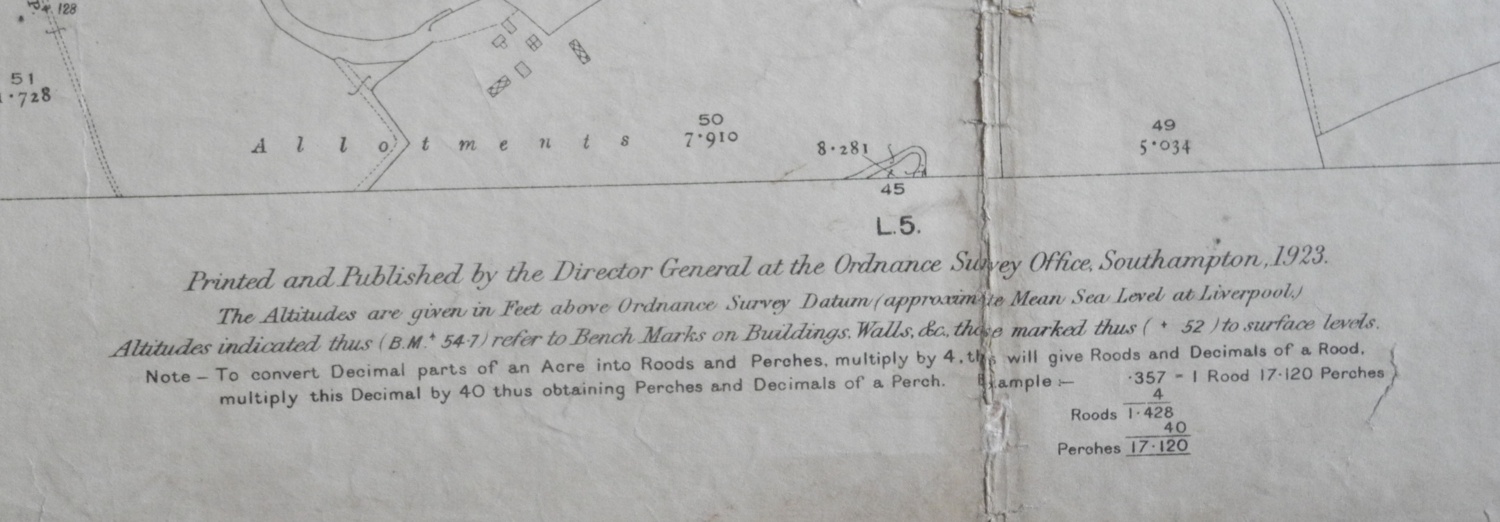 128
51
·728
Allotments
50
7·910
8·281
45
49
5·034
L.5.
Printed and Published by the Director General at the Ordnance Survey Office, Southampton, 1923.
The Altitudes are given in Feet above Ordnance Survey Datum (approximate Mean Sea Level at Liverpool.)
Altitudes indicated thus (B.M.+ 54·7) refer to Bench Marks on Buildings, Walls, &c., those marked thus ( + 52 ) to surface levels.
Note – To convert Decimal parts of an Acre into Roods and Perches, multiply by 4, this will give Roods and Decimals of a Rood,
multiply this Decimal by 40 thus obtaining Perches and Decimals of a Perch. Example :– ·357 = 1 Rood 17·120 Perches
4
Roods 1·428
40
Perches 17·120